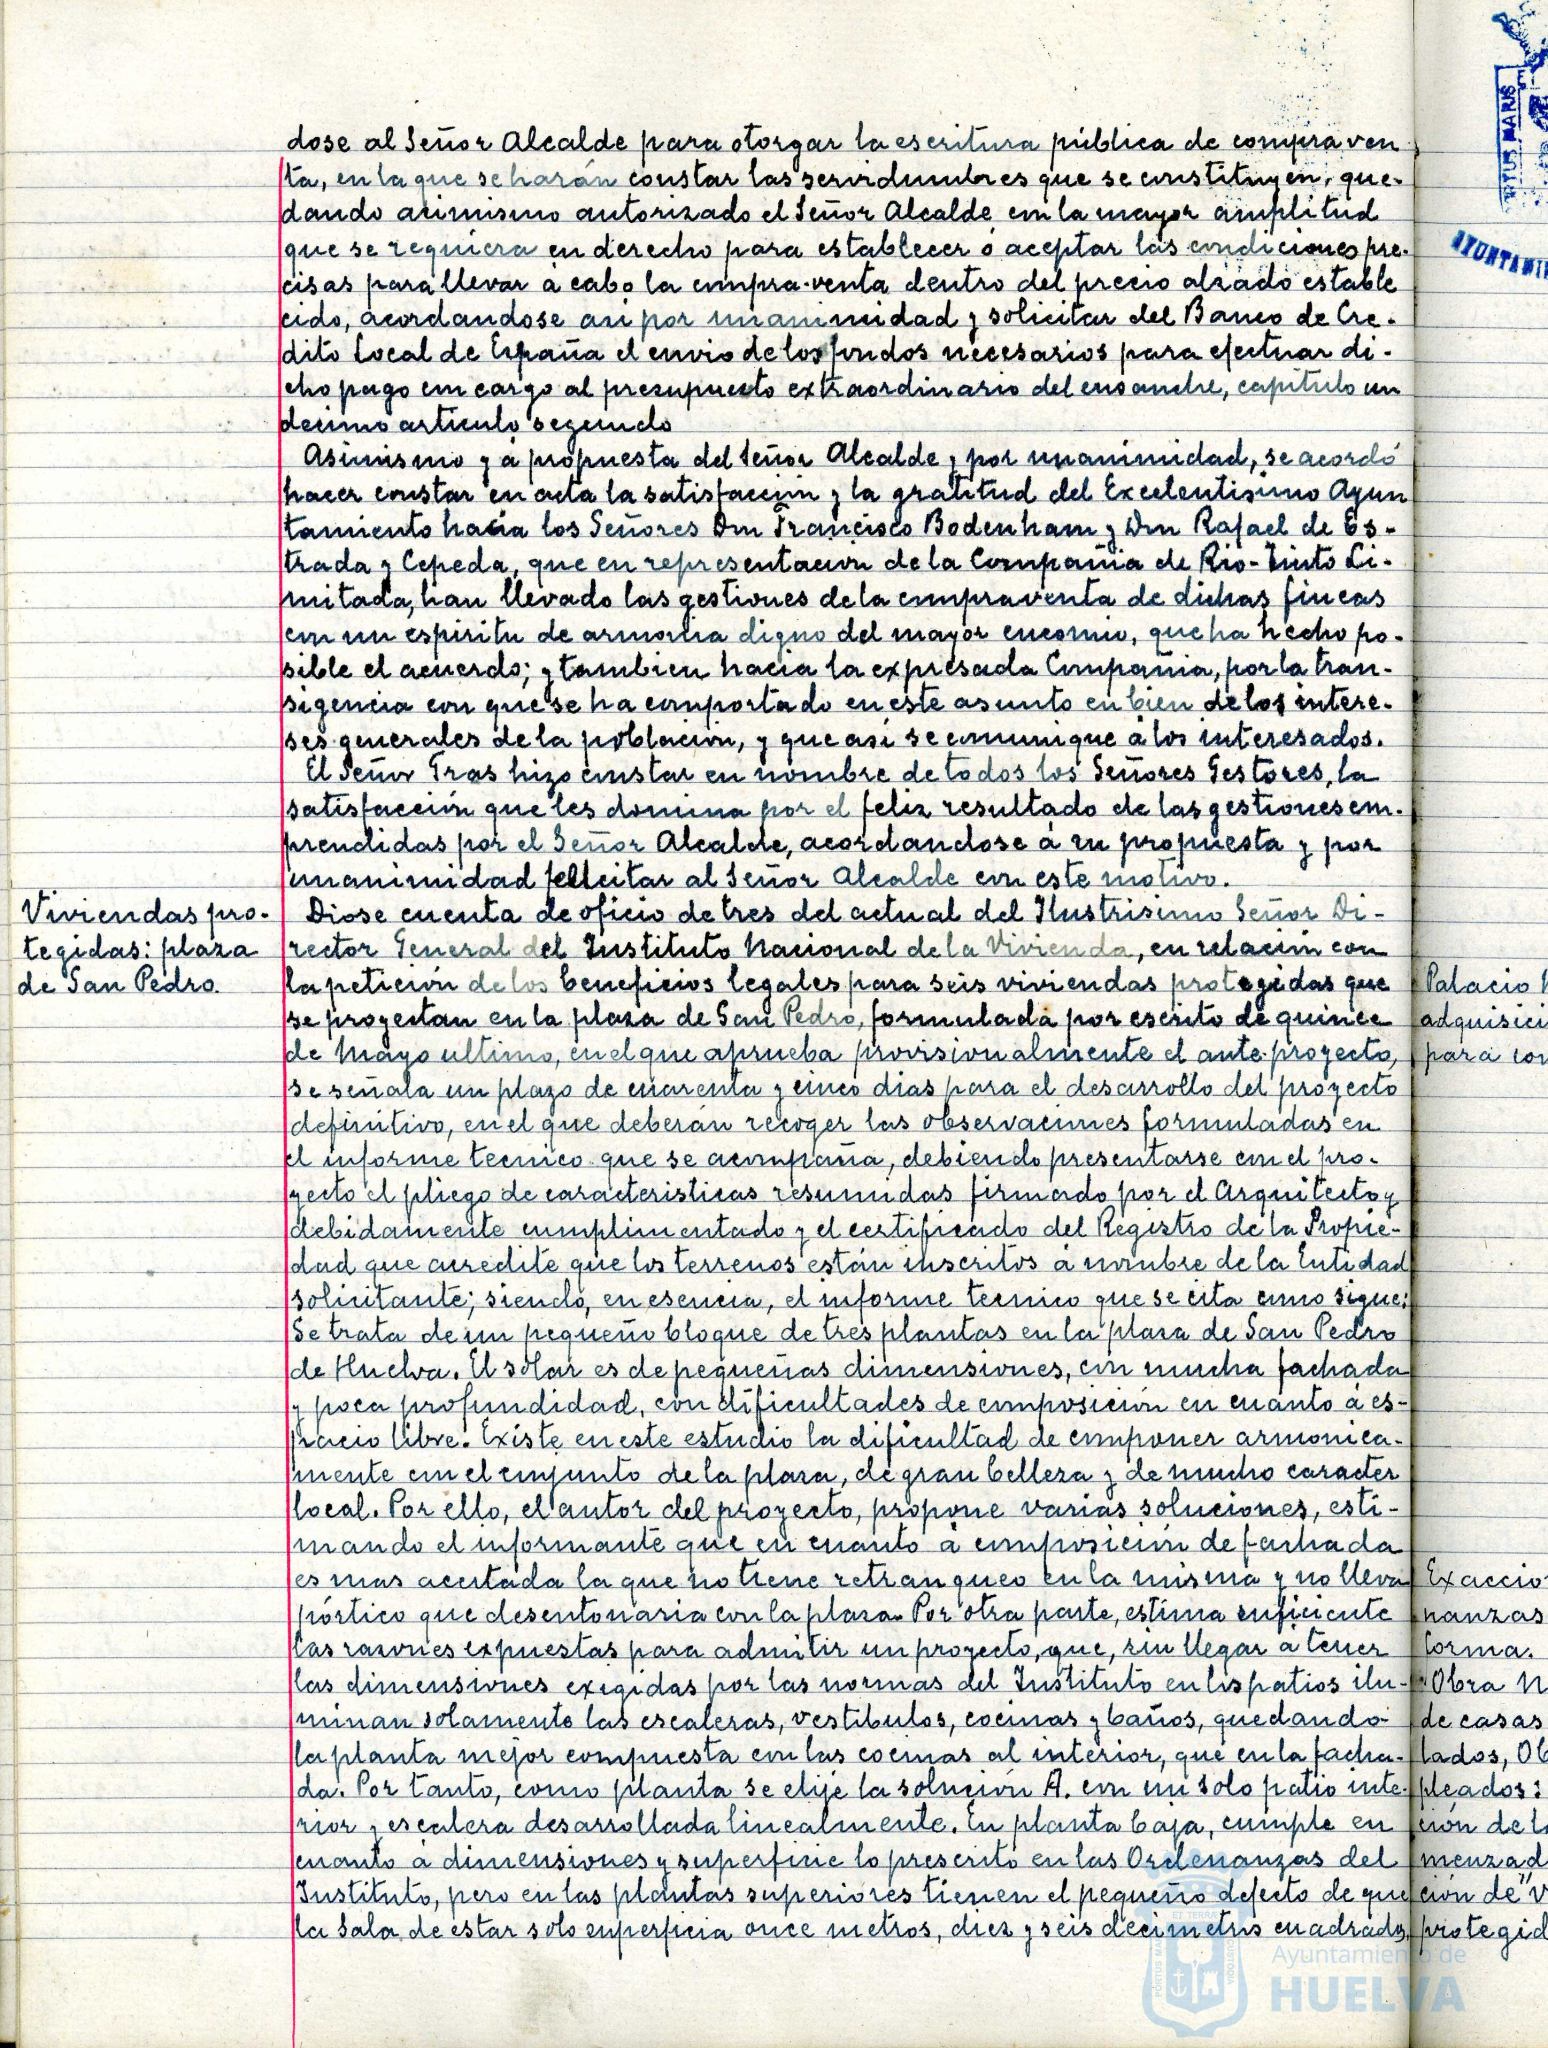 dose al Señor Alcalde para otorgar la escritura pública de compra ven
ta, en la que se harán constar las servidumbres que se constituyen, que-
dando asimismo autorizado el Señor Alcalde con la mayor amplitud
que se requiera en derecho para establecer ó aceptar las condiciones pre-
cisas para llevar á cabo la compra-venta dentro del precio alzado estable
cido, acordandose asi por unanimidad y solicitar del Banco de Cre-
dito Local de España el envio de los fondos necesarios para efectuar di-
cho pago con cargo al presupuesto extraordinario del ensanche, capitulo un
decimo articulo segundo
Asimismo y á propuesta del Señor Alcalde y por unanimidad, se acordó
hacer constar en acta la satisfacción y la gratitud del Excelentisimo Ayun
tamiento hacia los Señores Don Francisco Bodenham y Don Rafael de Es-
trada y Cepeda, que en representacion de la Compañia de Rio-Tinto Li-
mitada, han llevado las gestiones de la compraventa de dichas fincas
con un espiritu de armonia digno del mayor encomio, que ha hecho po-
sible el acuerdo; y tambien hacia la expresada Compañia, por la tran-
sigencia con que se ha comportado en este asunto en bien de los intere-
ses generales de la población, y que asi se comunique á los interesados.
El Señor Tras hizo constar en nombre de todos los Señores Gestores, la
satisfacción que les domina por el feliz resultado de las gestiones em-
prendidas por el Señor Alcalde, acordandose á su propuesta y por
unanimidad felicitar al Señor Alcalde con este motivo.
Viviendas pro-
tegidas: plaza
de San Pedro.
Diose cuenta de oficio de tres del actual del Ilustrisimo Señor Di-
rector General del Instituto Nacional de la Vivienda, en relación con
la petición de los beneficios legales para seis viviendas protegidas que
se proyectan en la plaza de San Pedro, formulada por escrito de quince
de Mayo ultimo, en el que aprueba provisionalmente el ante-proyecto,
se señala un plazo de cuarenta y cinco dias para el desarrollo del proyecto
definitivo, en el que deberán recoger las observaciones formuladas en
el informe tecnico que se acompaña, debiendo presentarse con el pro-
yecto el pliego de caracteristicas resumidas firmado por el Arquitecto y
debidamente cumplimentado y el certificado del Registro de la Propie-
dad que acredite que los terrenos están inscritos á nombre de la Entidad
solicitante; siendo, en esencia, el informe tecnico que se cita como sigue:
Se trata de un pequeño bloque de tres plantas en la plaza de San Pedro
de Huelva. El solar es de pequeñas dimensiones, con mucha fachada
y poca profundidad, con dificultades de composición en cuanto á es-
pacio libre. Existe en este estudio la dificultad de componer armonica-
mente con el conjunto de la plaza, de gran belleza y de mucho caracter
local. Por ello, el autor del proyecto, propone varias soluciones, esti-
mando el informante que en cuanto á composición de fachada
es mas acertada la que no tiene retranqueo en la misma y no lleva
pórtico que desentonaria con la plaza. Por otra parte, estima suficiente
las razones expuestas para admitir un proyecto, que, sin llegar á tener
las dimensiones exigidas por las normas del Instituto en los patios ilu-
minan solamente las escaleras, vestibulos, cocinas y baños, quedando
la planta mejor compuesta con las cocinas al interior, que en la facha-
da. Por tanto, como planta se elije la solución A. con un solo patio inte-
rior y escalera desarrollada linealmente. En planta baja, cumple en
cuanto á dimensiones y superficie lo prescrito en las Ordenanzas del
Instituto, pero en las plantas superiores tienen el pequeño defecto de que
la Sala de estar solo superficia once metros, diez y seis decimetros cuadrados
Palacio
adquisici
para con
Exaccio
nanzas
forma.
"Obra N
de casas
lados, Ob
pleados:
ción de l
menzad
ción de "V
protegid
PORTUS MARIS
AYUNTAMI
Ayuntamiento de
HUELVA